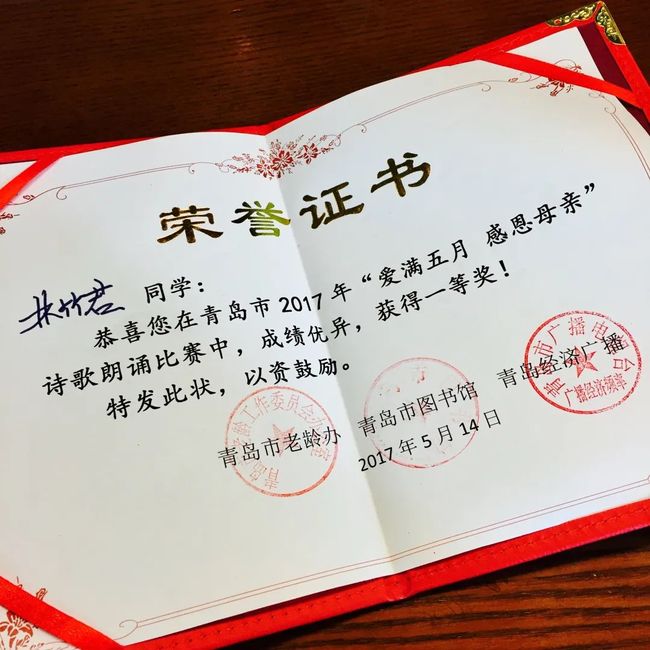 荣誉证书
林竹君 同学：
恭喜您在青岛市2017年“爱满五月 感恩母亲”
诗歌朗诵比赛中，成绩优异，获得一等奖！
特发此状，以资鼓励。
青岛市老龄办 青岛市图书馆 青岛经济广播
2017年5月14日
青岛市广播电视台
广播经济频率